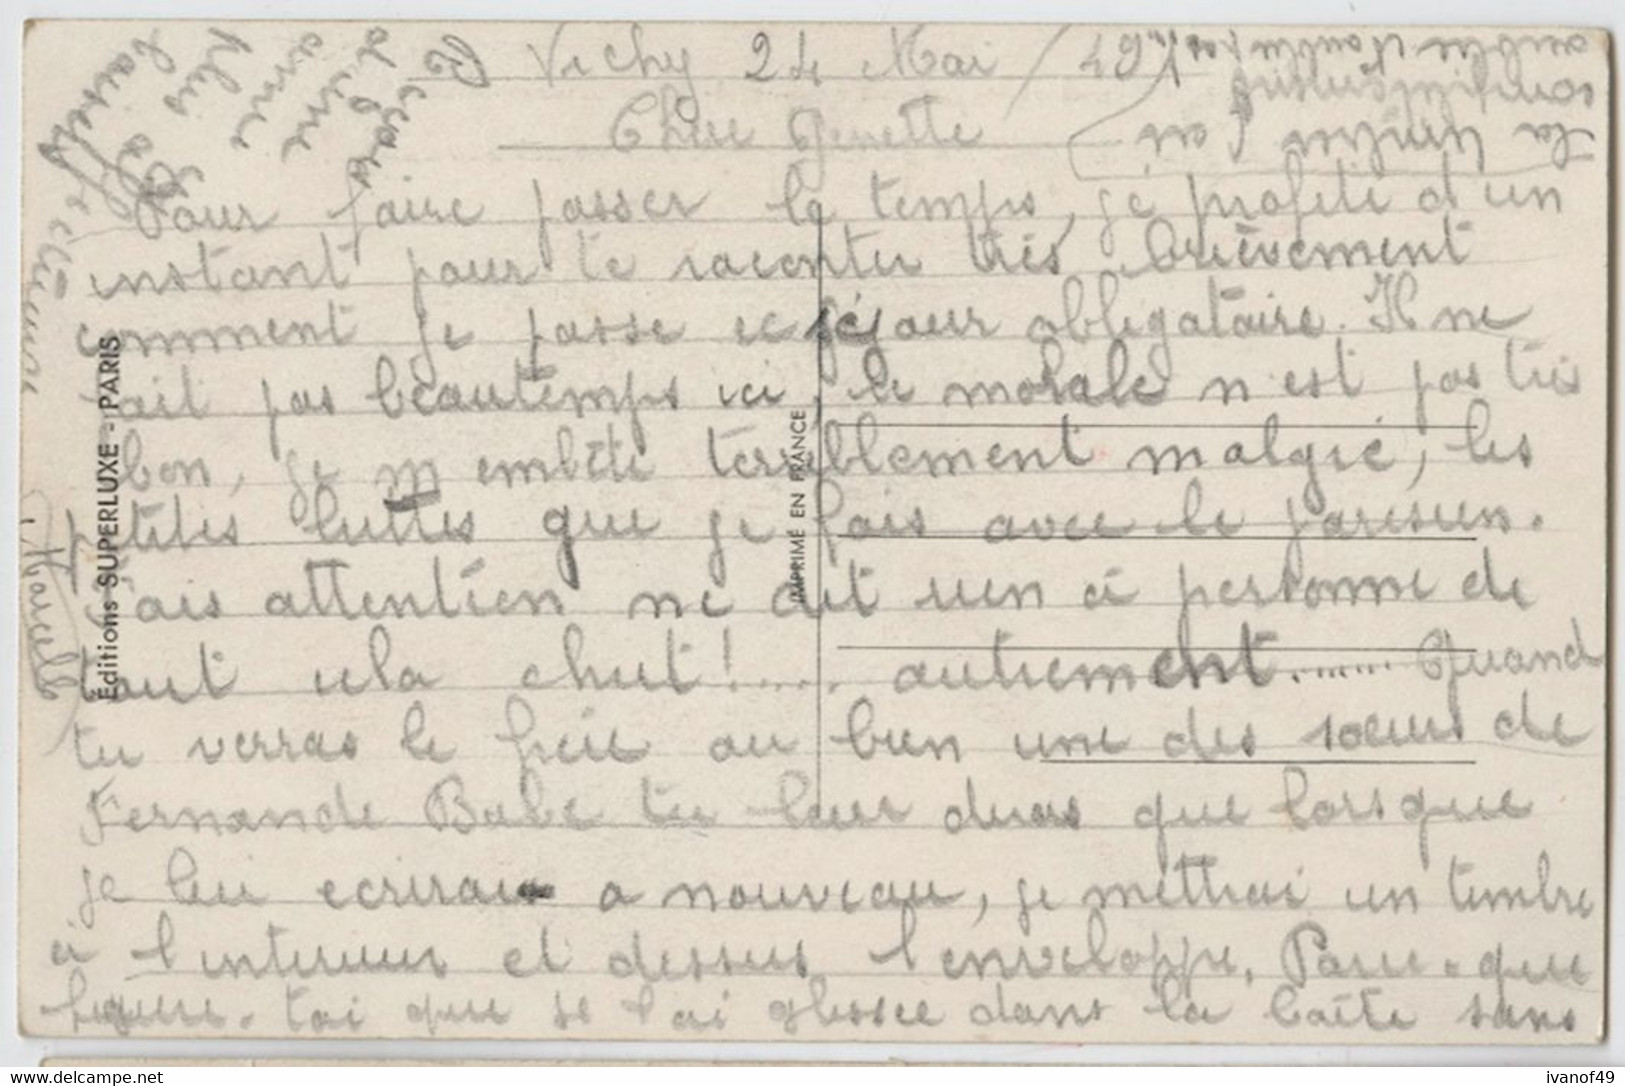 Vichy 24 Mai 49
Chère Ginette
Pour faire passer le temps, je profite d'un
instant pour te raconter très brièvement
comment je passe ce séjour obligataire. Il ne
fait pas beautemps ici, le morale n'est pas très
bon, je m'embête terriblement malgré, les
petites luttes que je fais avec le parisien.
Fais attention ne dit rien à personne de
tout cela chut!..... autrement........ Quand
tu verras le frère ou bien une des sœurs de
Fernande Babe tu leur diras que lorsque
je lui ecrirai a nouveau, je mettrai un timbre
à l'interieur et dessus l'enveloppe. Parce-que
figure-toi que je l'ai glissée dans la boîte sans
la timbrer j'ai
oublié
Reçois
d'une
amie
plus
baisers
Marcelle
Éditions SUPERLUXE - PARIS
IMPRIMÉ EN FRANCE
ivanof49